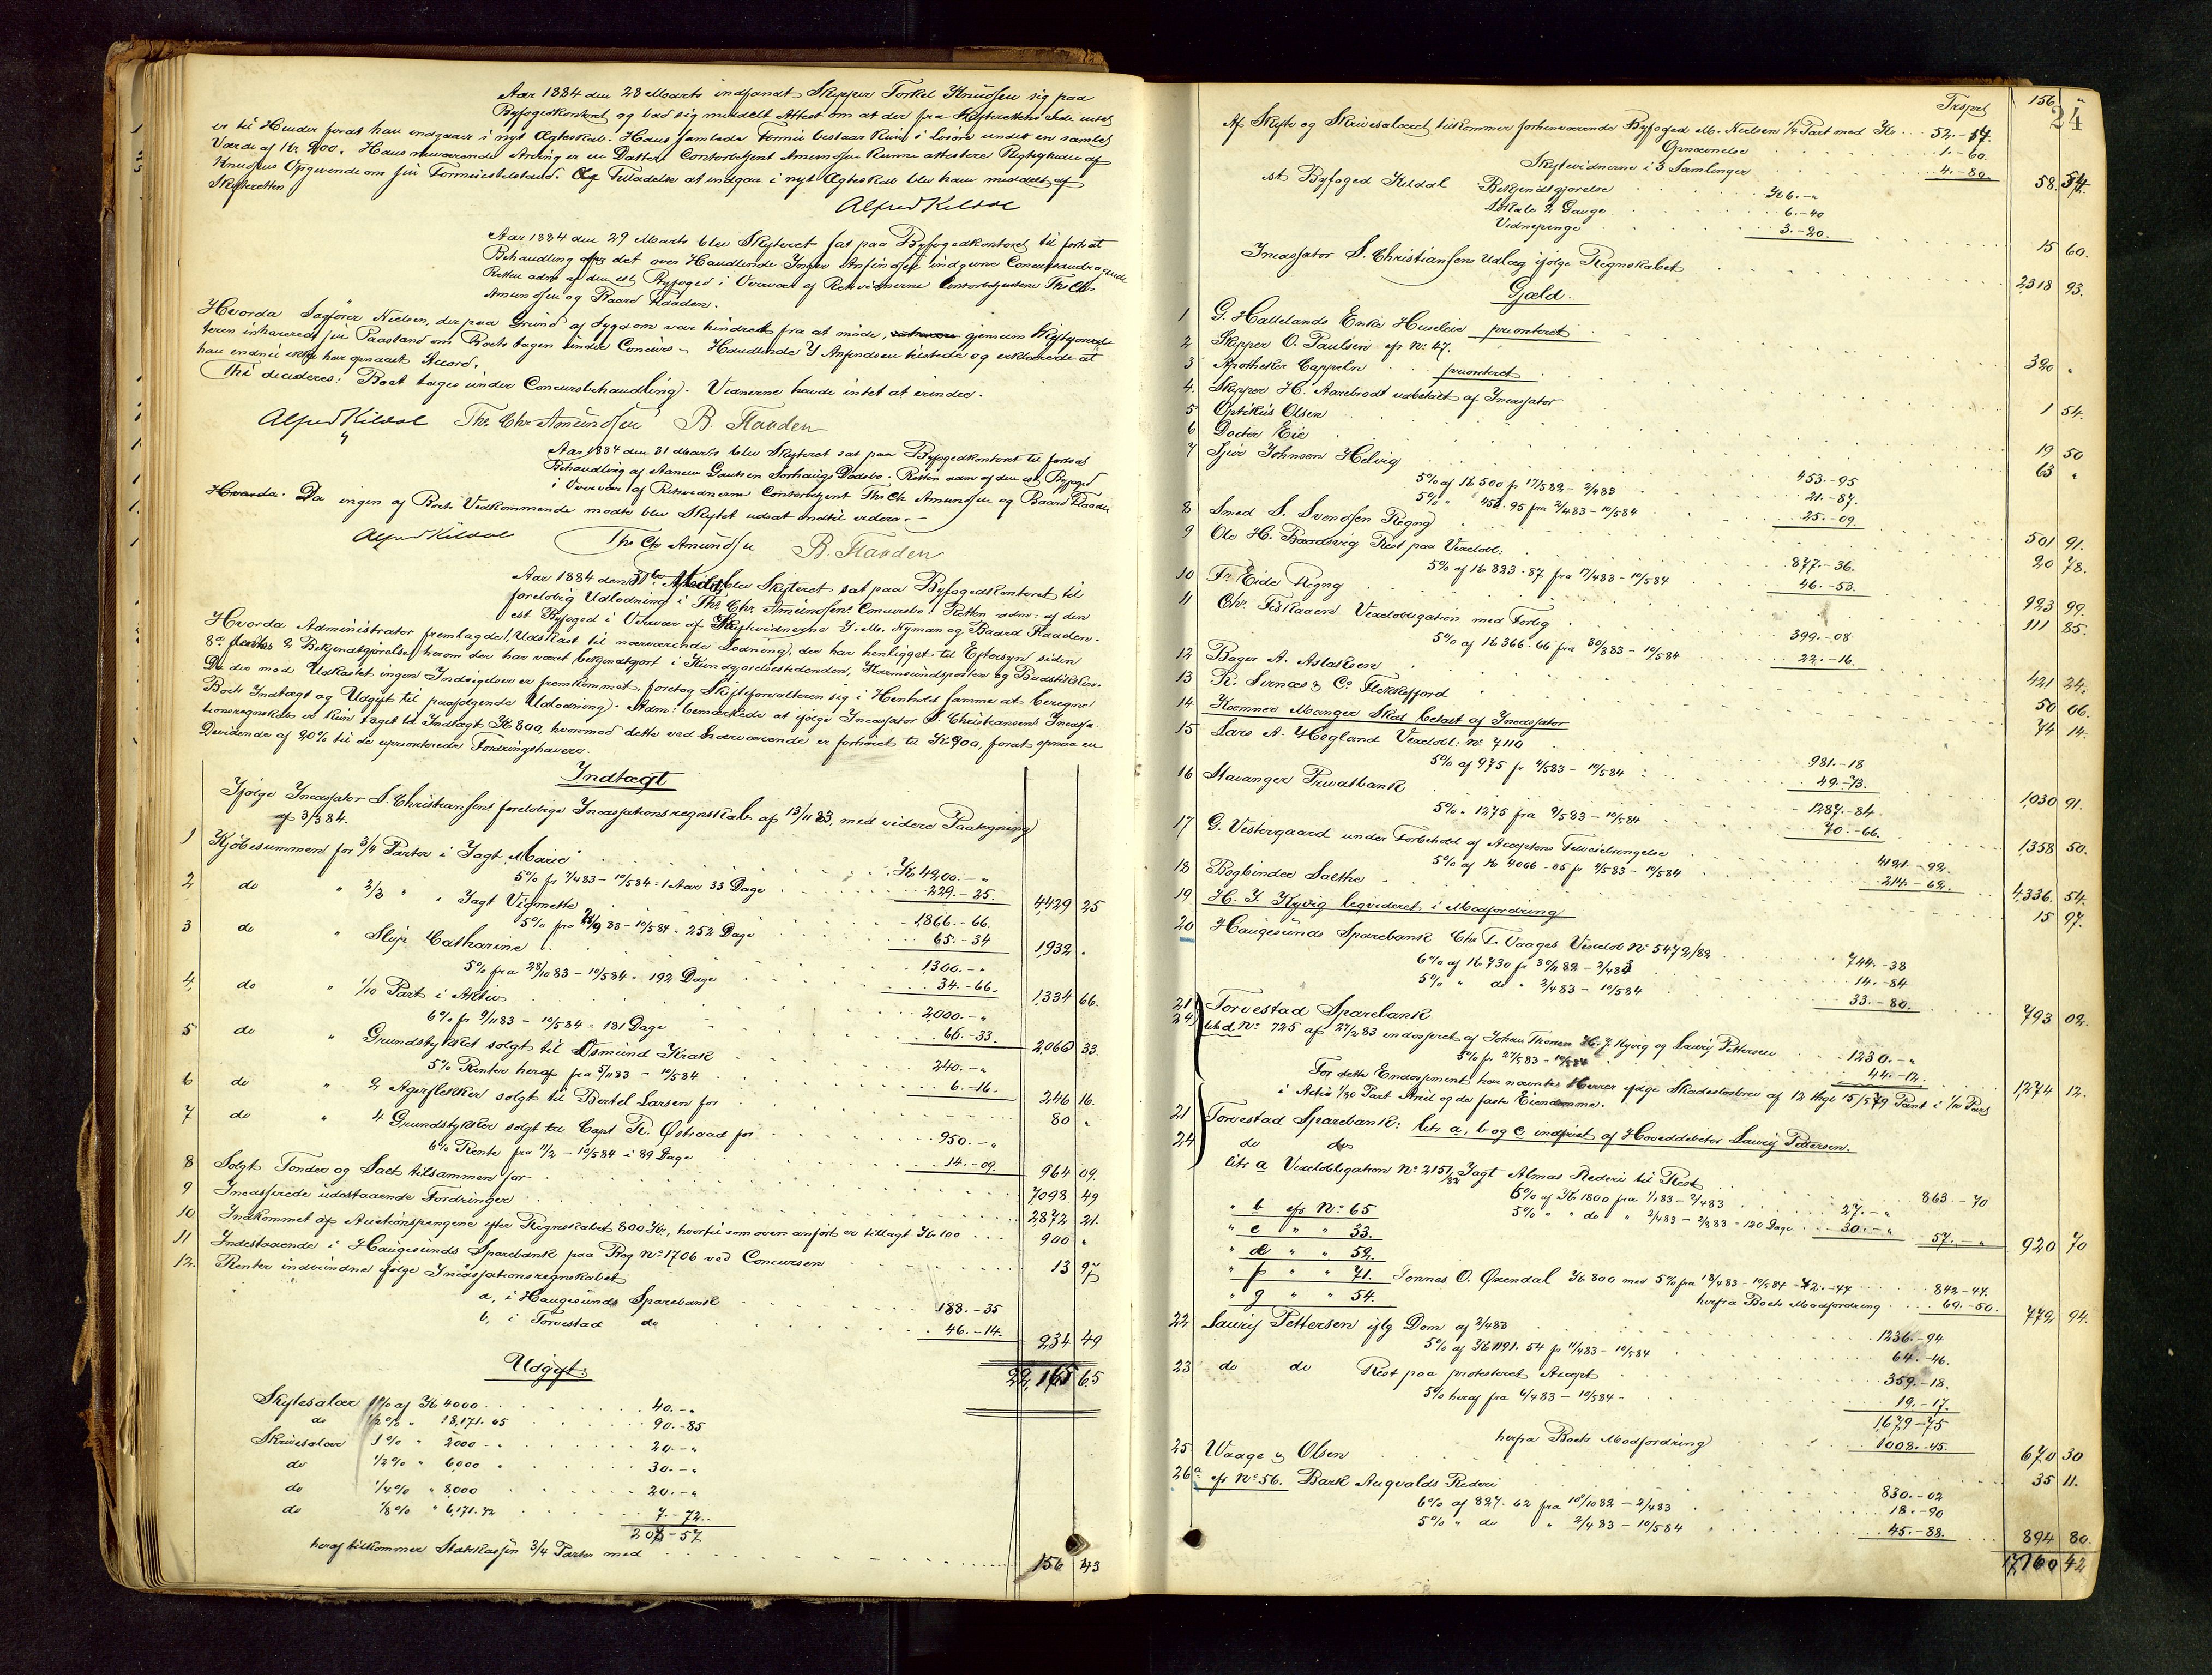 Aar 1884 den 28 Marts indfandt Skipper Torkel Knudsen sig paa
Byfogedkontoret og bad sig meddelt Attest om at der fra Skifterettens Side intet
er til Hinder forat han indgaaer i nyt Ægteskab. Hans samlede Formue bestaar kun i Løsøre under en samlet
Værdi af Kr 200. Hans nuværende Arving er en Datter. Contorbetjent Amundsen kunne attestere Rigtigheden af
Knudsens Opgivende om sin Formuestilstand. Og Tilladelse at indgaa i nyt Ægteskab blev ham meddelt af
Skifteretten
Alfred Kildal
Aar 1884 den 29 Marts blev Skifteret sat paa Byfogedkontoret til fortsat
Behandling af det over Handlende Ansendsen indgivne Concursandragende
Retten adm af den cst Byfoged i Overvær af Retsvidnerne Contorbetjentene Ths Chr
Amundsen og Baard Flaaden.
Hvorda Sagfører Nielsen, der paa Grund af Sygdom var hindret fra at møde, gjennem Skifteforvalteren
inhærerede sin Paastand om Boets tagen under Concurs. Handlende Y Ansendsen tilstede og erklærede at
han endnu ikke har opnaaet Accord.
Thi decideres: Boet tages under Concursbehandling. Vidnerne havde intet at erindre.
Alfred Kildal Ths. Chr. Amundsen B. Flaaden
Aar 1884 den 31 Marts blev Skifteret sat paa Byfogedkontoret til fortsat
Behandling af Gautsen Sørhaugs Dødsbo. Retten adm af den cst Byfoged
i Overvær af Retsvidnerne Contorbetjent Ths Chr Amundsen og Baard Flaaden
Hvorda. Da ingen af Boets Vedkommende mødte blev Skiftet udsat indtil videre.
Alfred Kildal Ths Chr Amundsen B. Flaaden
Aar 1884 den 31te Marts blev Skifteret sat paa Byfogedkontoret til
foreløbig Udlodning i Ths. Chr. Amundsens Concursbo. Retten adm. af den
cst Byfoged i Overvær af Skiftevidnerne Y. M. Nyman og Baard Flaaden.
Hvorda Administrator fremlagde Udkast til nærværende Lodning, der har henligget til Eftersyn siden
8de dennes & Bekjendtgjørelse herom der har været bekjendtgjort i Kundgjørelsestidenden, Karmsundsposten og Budstikken.
Da der mod Udkastet ingen Indsigelser er fremkommet, foretog Skifteforvalteren sig i Henhold samme at beregne
Boets Indtægt og Udgift til paafølgende Udlodning. Adm: bemærkede at ifølge Incassator S. Christiansens Incassationsregnskab
er kun taget til Indtægt Kr 800, hvormod dette ved Nærværende er forhøiet til Kr 900, forat opnaa en
Dividende af 20% til de uprioriterede Fordringshavere.
Indtægt
Ifølge Incassator S. Christiansens foreløbige Incassationsregnskab af 13/11 83, med videre Paategning
af 3/3 84.
1 Kjøbesummen for 3/4 Parter i Jagt "Marie" Kr 4200.-"
5% fr 7/4 83 - 10/5 84 = 1 Aar 33 Dage 229.-25. 4429 25
2 do " 2/3 " " Jagt Vignette 1866.-66.
5% fra 83 - 10/5 84 = 252 Dage 65.-34 1932 "
3 do " Slup Catharine 1300.-"
5% fra 28/10 83 - 10/5 84 = 192 Dage 34.-66. 1334 66.
4 do " 1/10 Part i Activ 2000.-"
6% fr 9/11 83 - 10/5 84 = 181 Dage 66.-33. 2066 33.
5 do " Grundstykket solgt til Osmund Krak 240.-"
5% Renter heraf fra 5/11 83 - 10/5 84 6.-16. 246 16.
6 do " 2 Agerflekker solgt til Bertel Larsen for 80 "
7 do " 4 Grundstykker solgt til Capt. R. Østraad for 950.-"
6% Rente fra 11/2 - 10/5 84 i 89 Dage 14.-09. 964 09.
8 Solgt Tønder og Salt tilsammen for 7098 49
9 Incasserede udestaaende Fordringer 2872 21.
10 Indkommet af Auctionspengene efter Regnskabet 800 Kr, hvortil som oven anført er tillagt Kr 100 900 "
11 Indestaaende i Haugesunds Sparebank paa Bog No 1706 ved Concursen 13 97
12. Renter indvundne ifølge Incassationsregnskabet
a, i Haugesunds Sparebank 188.-35
b, i Torvestad do 46.-14. 234 49
22,165 65
Udgift:
Skiftesalær 1% af Kr 4000 40.-"
do 1/2% " 18,171.65 90.-85
Skrivesalær 1% " 2000 20.-"
do 1/2% " 6000 30.-"
do 1/4% " 8000 20.-"
do 1/8% " 6,171.72 7.-72.
208-57
heraf tilkommer Statskassen 3/4 Parter med 156 43
24
Trsport 156 "
Af Skifte og Skrivesalæret tilkommer forhenværende Byfoged M. Nielsen 1/4 Part med Kr 52.-14.
Opnævnelse 1.-60.
Skiftevidnerne i 3 Samlinger 4.-80. 58. 54
cst Byfoged Kildal Bekjendtgjørelse Kr 6.-"
Lokale 2 Gange 6.-40
Vidnepenge 3.-20. 15 60.
Incassator S. Christiansens Udlæg ifølge Regnskabet 2318 93.
Gjæld.
1 G. Hallelands Enke Husleie prioriteret
2 Skipper O. Paulsen cfr No 47. 320 "
3 Apotheker Cappeln prioriteret
4. Skipper H. Aarebrodt udbetalt af Incassator 1 54.
5 Optikus Olsen
6 Doctor Eie 19 50
7 Sjur Johnsen Helvig 453.-95 63 "
5% af Kr 500 fr 17/5 82 - 2/4 83 21.-87.
5% " 453.95 fra 2/4 83 - 10/5 84 25.-09. 501 91.
8 Smed S. Svendsen Regng 20 78.
9 Ole H. Baadsvig Rest paa Vexelobl: 877.-36.
5% af Kr 823.87 fra 17/4 83 - 10/5 84 46.-53. 923 99.
10 Fr. Eide Regng 111 85.
11 Chr. Fiskaaen Vexelobligation med Forlig 399.-08
5% af Kr 366.66 fra 30/3 83 - 10/5 84 22.-16. 421 24.
12 Bager A. Aslaksen 50 06.
13 R. Svenæs & Co Flekkefjord 74 14.
14 Kæmner Manger Skat betalt af Incassator
15 Lars A. Hegland Vexelobl: No 7110 981.-18
5% af 975 fr 4/5 83 - 10/5 84 49.-73. 1030 91.
16 Stavanger Privatbank 1287.-84.
5% " 1275 fra 9/5 83 - 10/5 84 70.-66. 1358 50.
17 G. Vestergaard under Forbehold af Acceptens Tilveiebringelse 4121.-92.
5% af Kr 4066.05 fr 4/5 83 - 10/5 84 214.-62. 4336. 54.
18 Bogbinder Salthe 15 97.
19 H. J. Kyvig liqvideret i Modfordring
20 Haugesunds Sparebank Chr. T. Vaages Vexelobl No 5472/82 744.-38
6% af Kr 730 fr 30/11 82 - 2/4 83 14.-84
5% " do " 2/4 83 - 10/5 84 33.-80. 793 02.
21 Torvestad Sparebank
24 litr d No 725 af 27/2 83 endosseret af Johan Thomsen H. J. Kyvig og Laurij Pettersen 1230.-"
5% fr 27/5 83 - 10/5 84 44.-12. 1274 12.
For dette Endossement har nævnte Herrer ifølge Skadesløsbrev af 12 tlgl 15/5 79 Pant i 1/10 Part
i Activ 1/20 Part Anil og de faste Eiendomme.
21 Torvestad Sparebank: litr a, b og c indfriet af Hoveddebitor Laurij Pettersen.
24 do do
litr a Vexelobligation No 2151/82 Jagt Almas Rederi til Rest 863.-70
6% af Kr 1800 fra 1/1 83 - 2/4 83 27.-"
" b cfr No 65 5% " " do " 2/4 83 - 2/8 83 = 120 Dage 30.-" 57.-" 920 70
" c " " 33.
" d " " 52.
" f " " 71. Tønnes O. Øxendal Kr 800 med 5% fra 18/4 83 - 10/5 84 42.-47 842-47.
" g " " 54. herfra Boets Modfordring 69.-50. 772 94.
22 Laurij Pettersen iflg Dom af 2/4 83 1236.-94
5% af Kr 1191.54 fr 11/4 83 - 10/5 84 64.-46.
23 do do Rest paa protesteret Accept 359.-18.
5% heraf fra 6/4 83 - 10/5 84 19.-17.
1679-75
herfra Boets Modfordring 1008.-45. 670 30
25 Waage & Olsen 35 11.
26a cfr No 56. Bark Augvalds Rederi 830.-02
6% af 827.62 fra 10/10 82 - 2/4 83 18.-90
5% " do " 2/4 83 - 10/5 84 45.-88. 894 80.
17,160 42